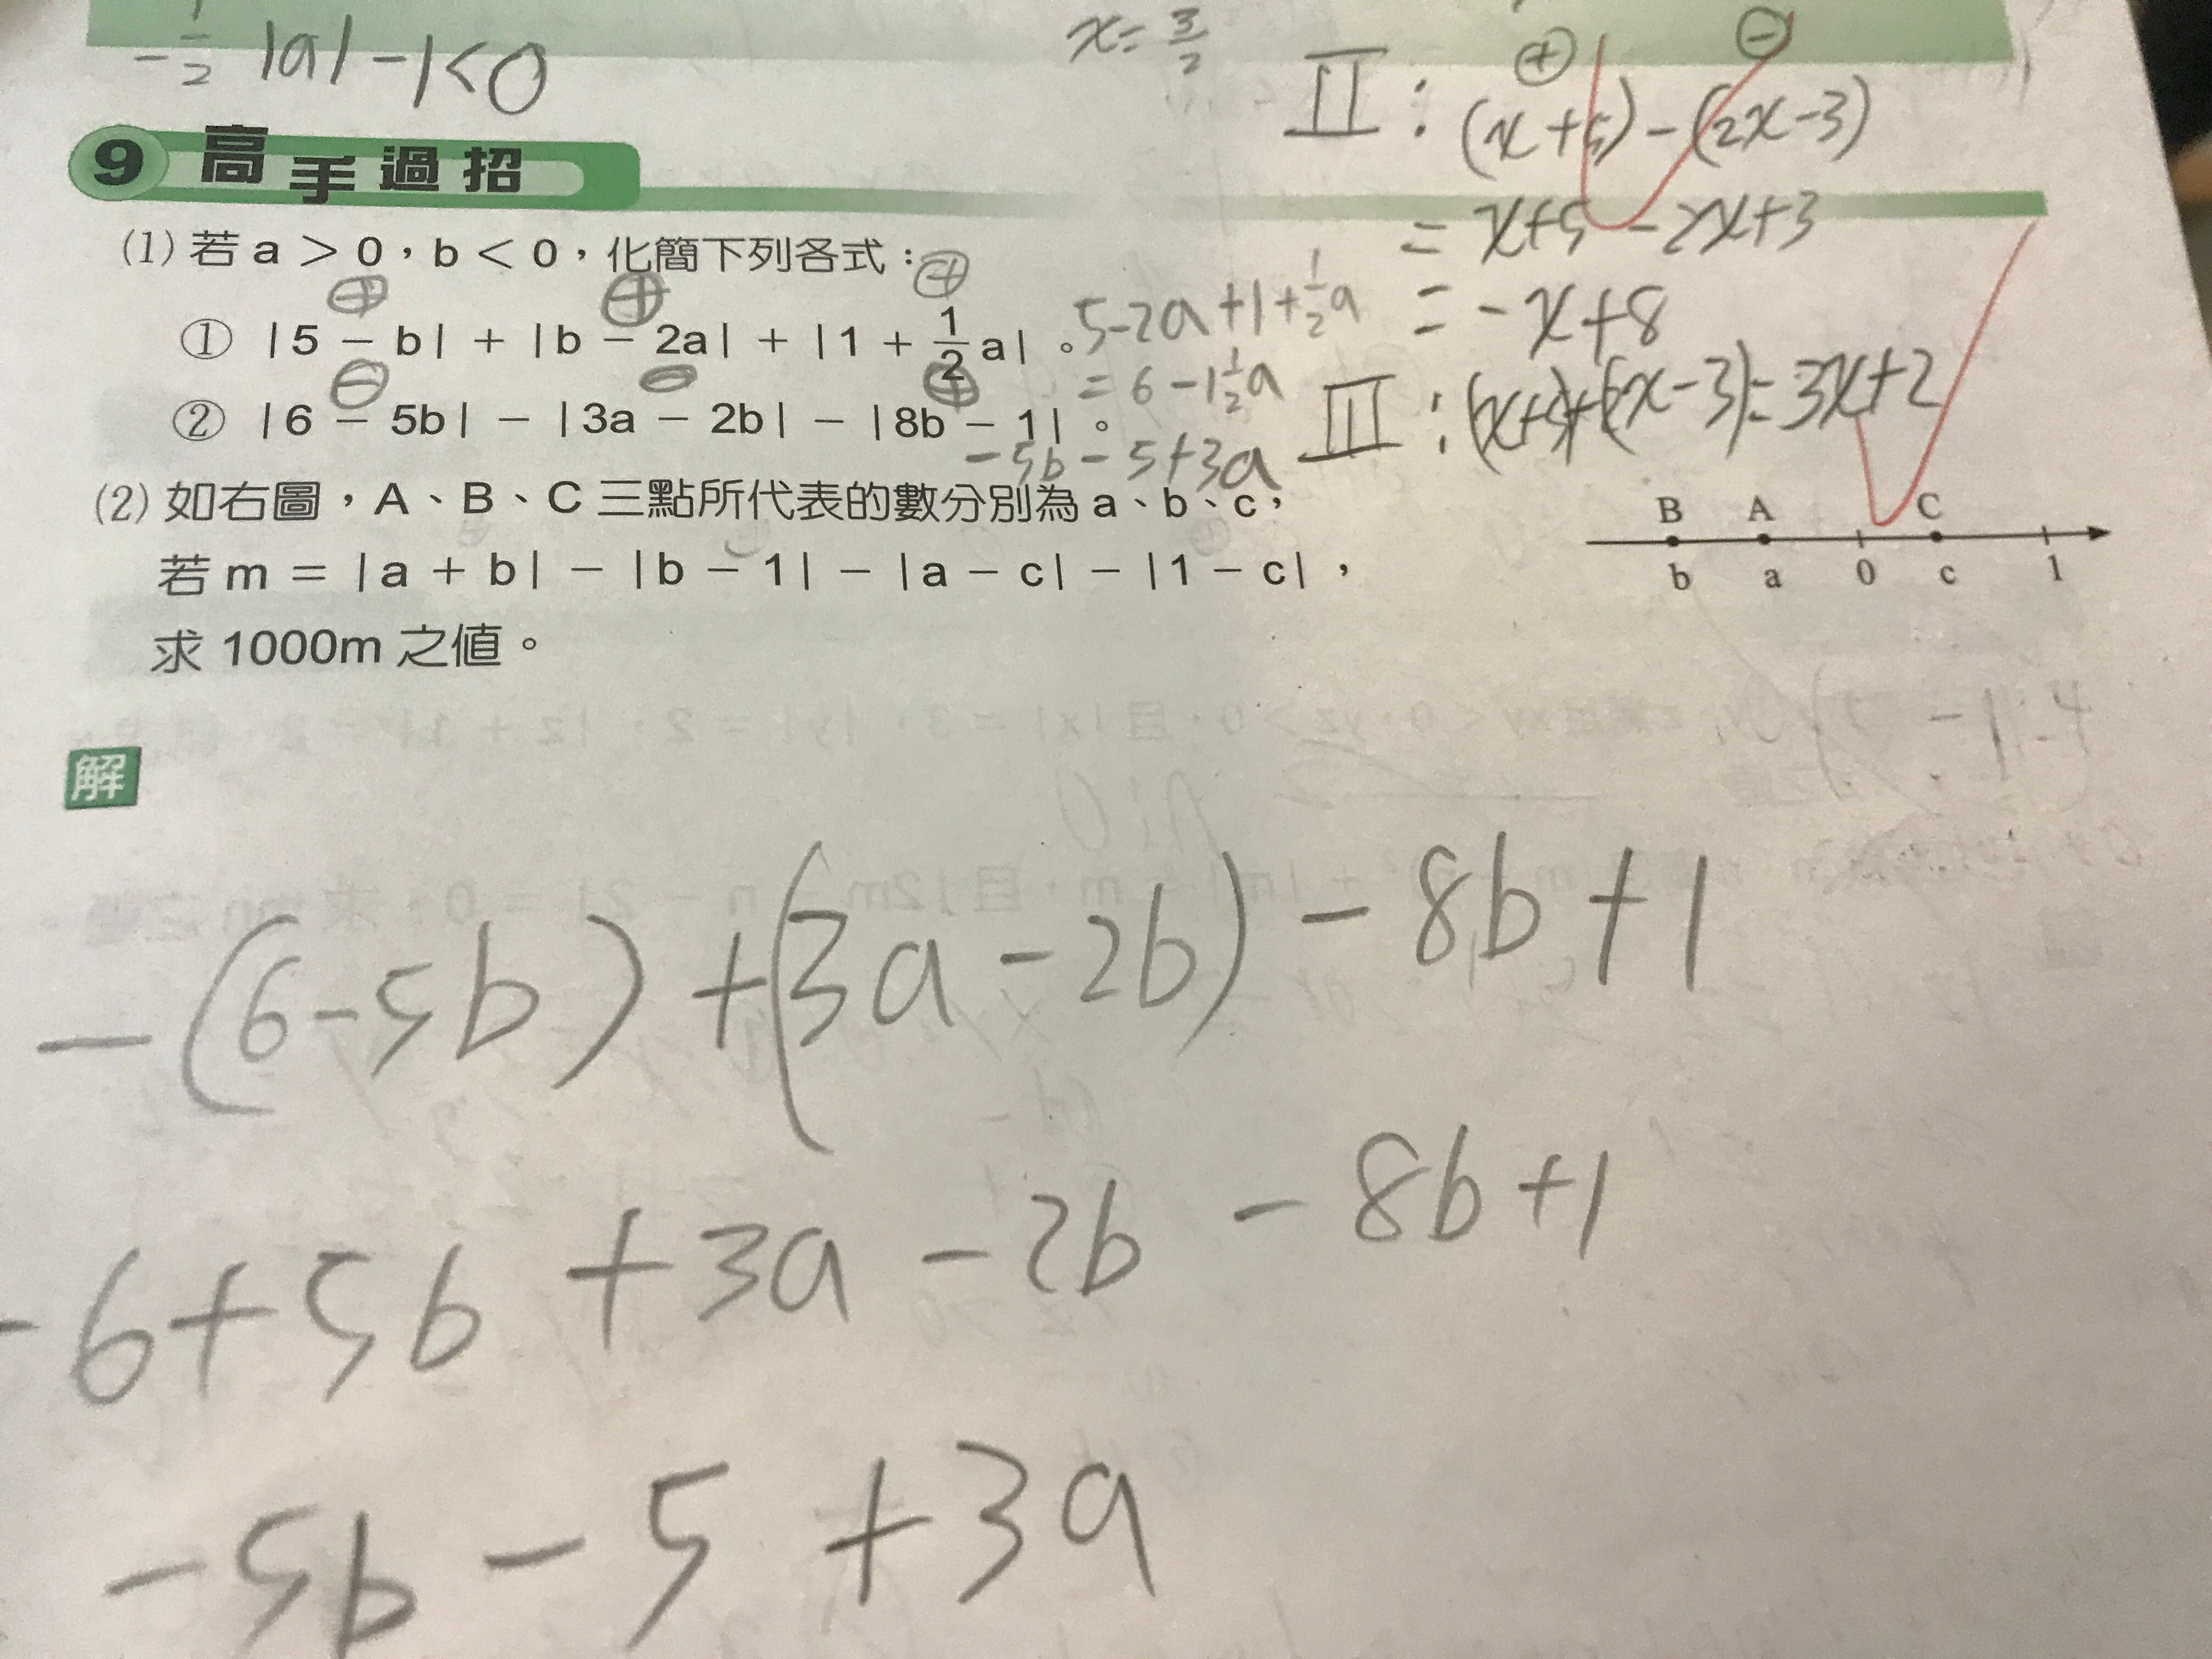 -1/2 |a| -1<0
x= 3/2
⊕ ⊖
II : (x+5)-(2x-3)
= x+5-2x+3
= -x+8
III : (x+5)+(2x-3)=3x+2
9 高手過招
(1) 若 a > 0，b < 0，化簡下列各式：
⊕ ⊕ ⊕
① | 5 − b | + | b − 2a | + | 1 + 1/2 a | 。
5-2a+1+1/2a
= 6-1 1/2a
⊖ ⊖ ⊕
② | 6 − 5b | − | 3a − 2b | − | 8b − 1 | 。
-5b-5+3a
(2) 如右圖，A、B、C 三點所代表的數分別為 a、b、c，
若 m = | a + b | − | b − 1 | − | a − c | − | 1 − c | ，
求 1000m 之值。
B A C
b a 0 c 1
解
-(6-5b)+(3a-2b)-8b+1
-6+5b+3a-2b-8b+1
-5b-5+3a